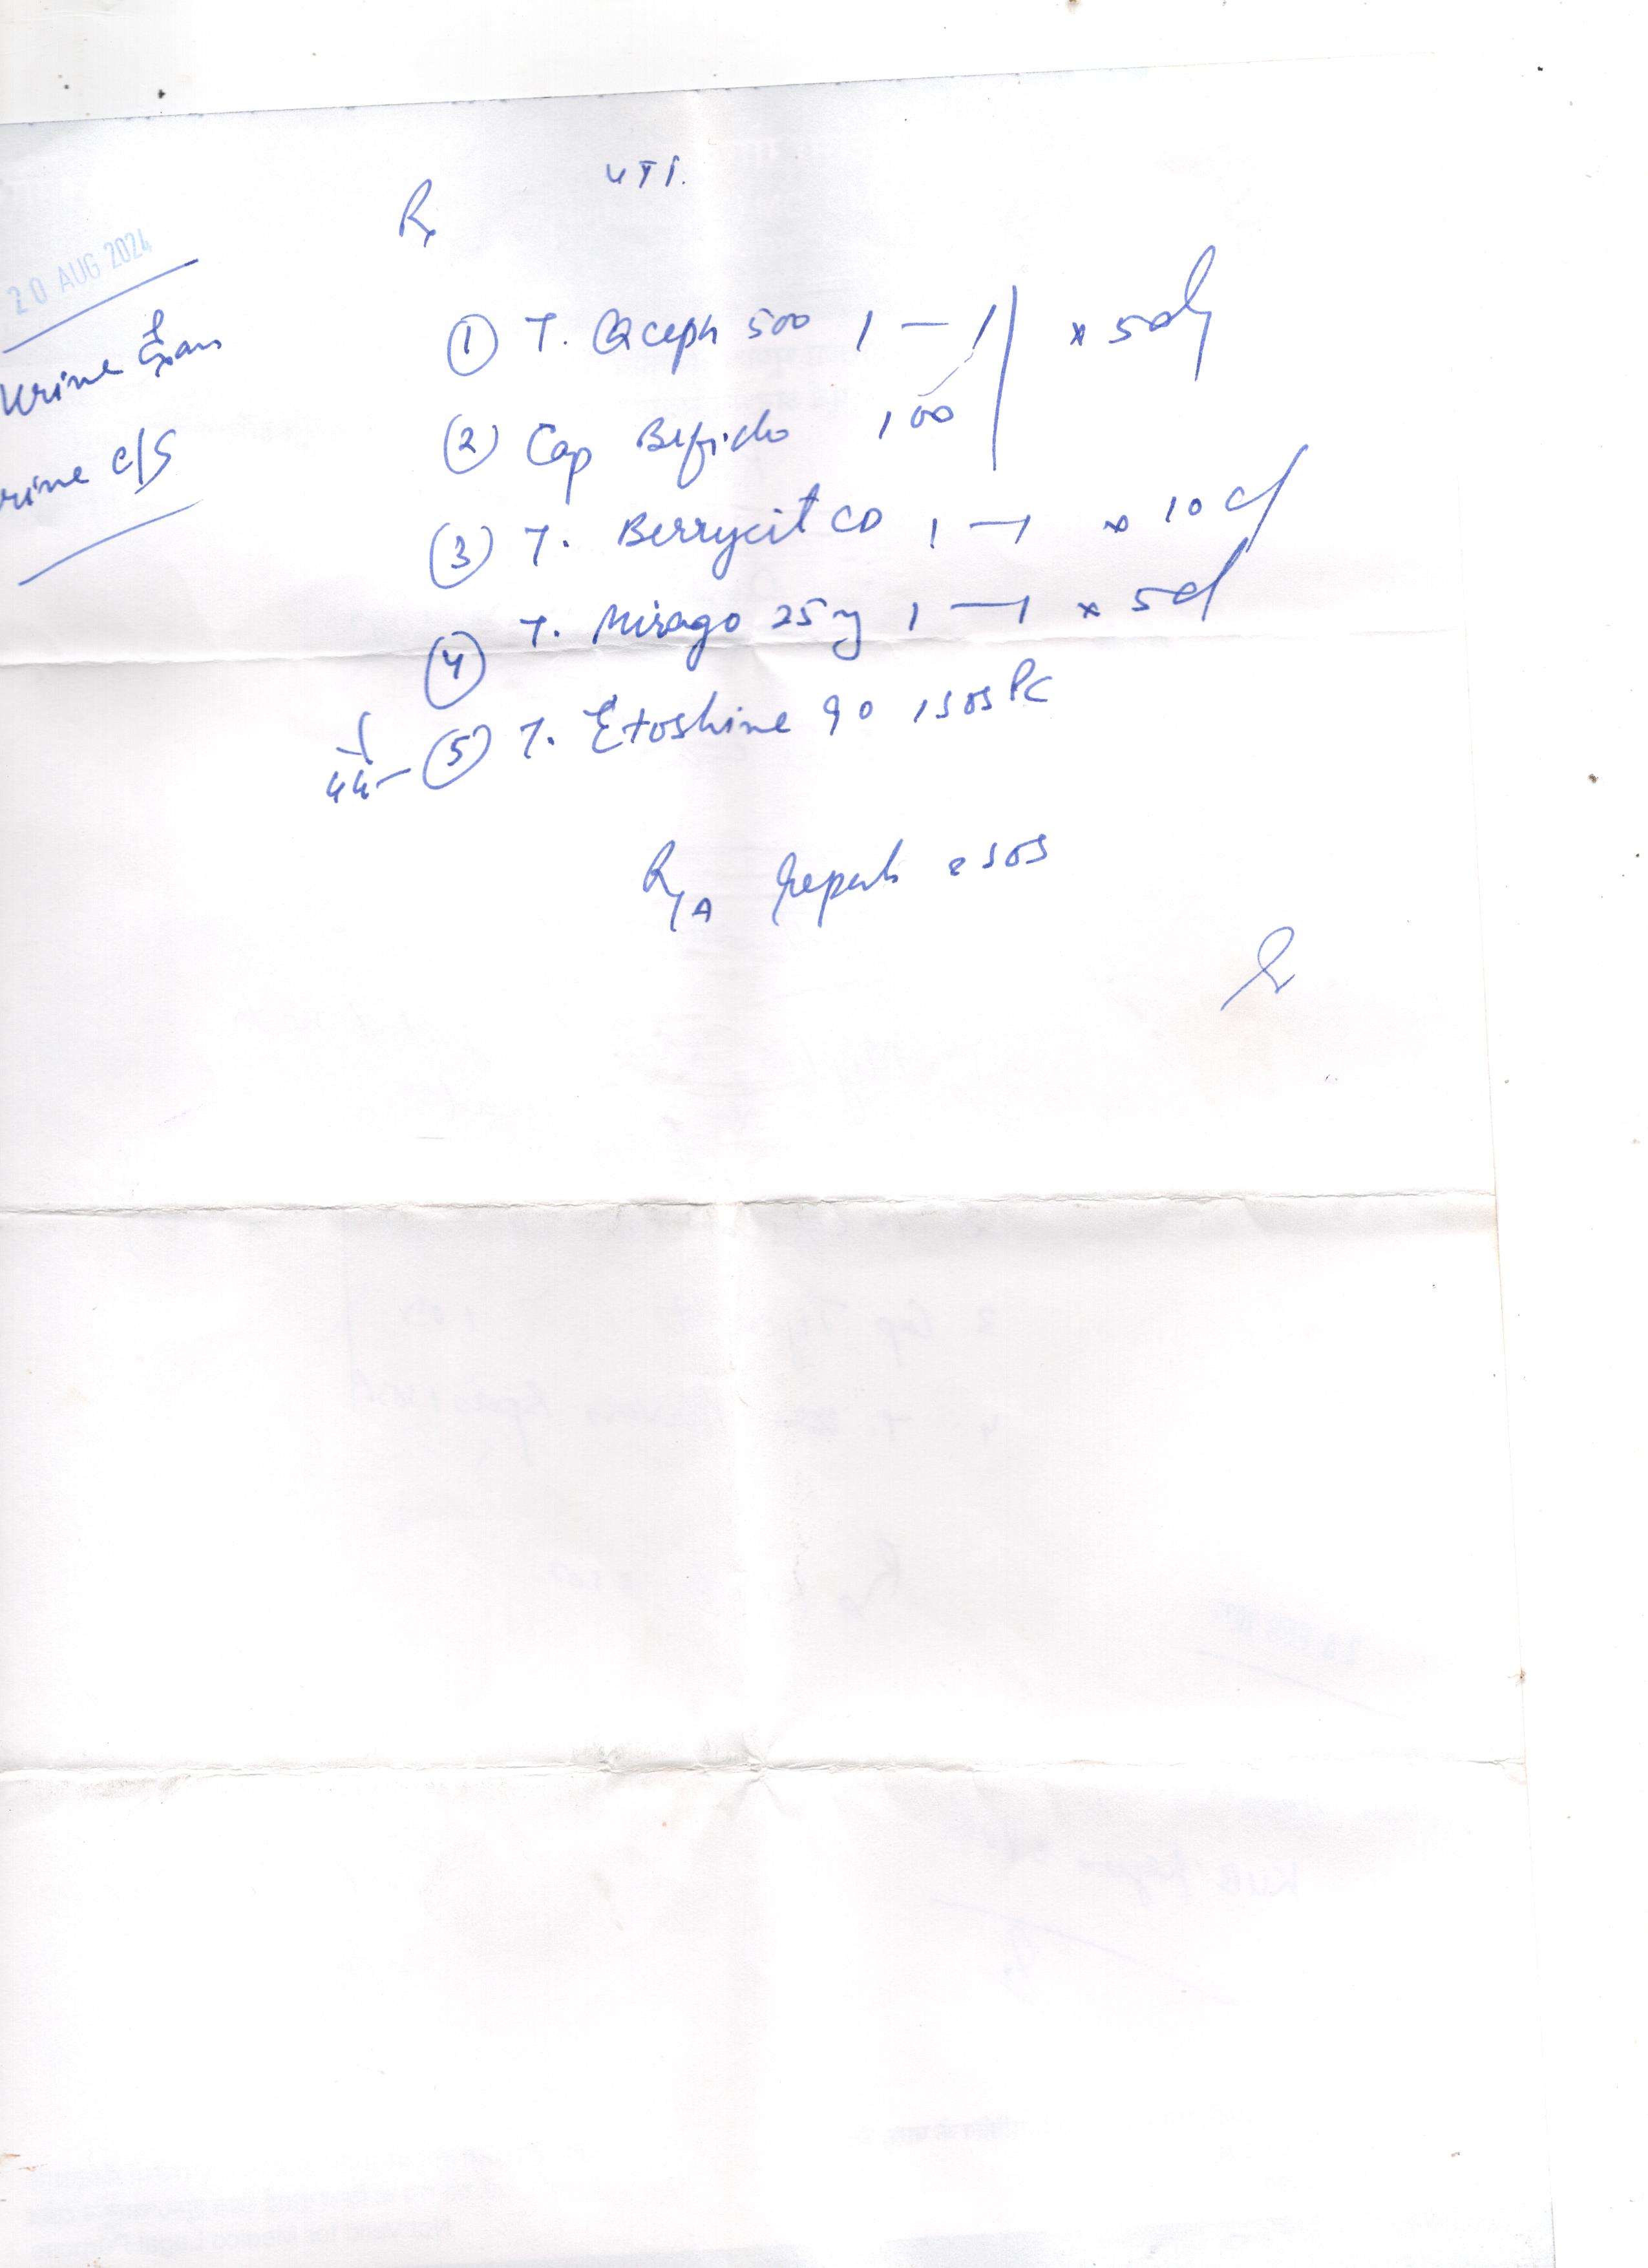 UTI.
Rx
20 AUG 2024
Urine Exam
Urine C/S
① T. Qceph 500 1 — 1 x 5d
② Cap Bifido 1 OD
③ T. Berrycit CD 1 — 1 x 10 d
④ T. Mirago 25mg 1 — 1 x 5d
⑤ T. Etoshine 90 1 SOS PC
R/A Reports & SOS